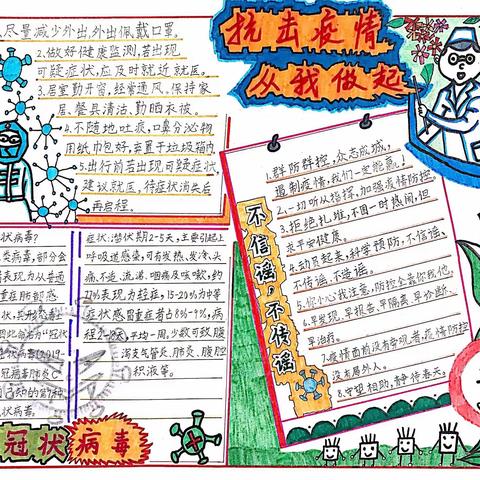 抗击疫情
从我做起
尽量减少外出,外出佩戴口罩。
2.做好健康监测,若出现
可疑症状,应及时就近就医。
3.居室勤开窗,经常通风,保持家
居、餐具清洁,勤晒衣被。
4.不随地吐痰,口鼻分泌物
用纸巾包好,弃置于垃圾箱内
5.出行前若出现可疑症状,
建议就医,待症状消失后
再启程。
不信谣,不传谣
1.群防群控,众志成城,
遏制疫情,我们一定能赢!
2.一切听从指挥,加强疫情防控
3.拒绝扎堆,不图一时热闹,但
求平安健康。
4.动员起来,科学预防,不信谣、
不传谣、不造谣。
5.你小心我注意,防控全靠你我他,
6.早发现、早报告、早隔离、早诊断、
早治疗。
7.疫情面前没有旁观者,疫情防控
没有局外人。
8.守望相助,静待春天。
状病毒?
炎病毒,部分会
表现力从普通
重症肺部感
状病毒(2019-
状病毒。
症状:潜伏期2-5天,主要引起上
呼吸道感染,可有发热、发冷、头
痛、不适、流涕、咽痛及咳嗽,约
表现力轻症,15-20%为中等
症状感冒重症者占8%-9%,病
程2-18天,平均一周,少数可致腹
泻支气管炎、肺炎、腹腔
积液等。
冠状病毒